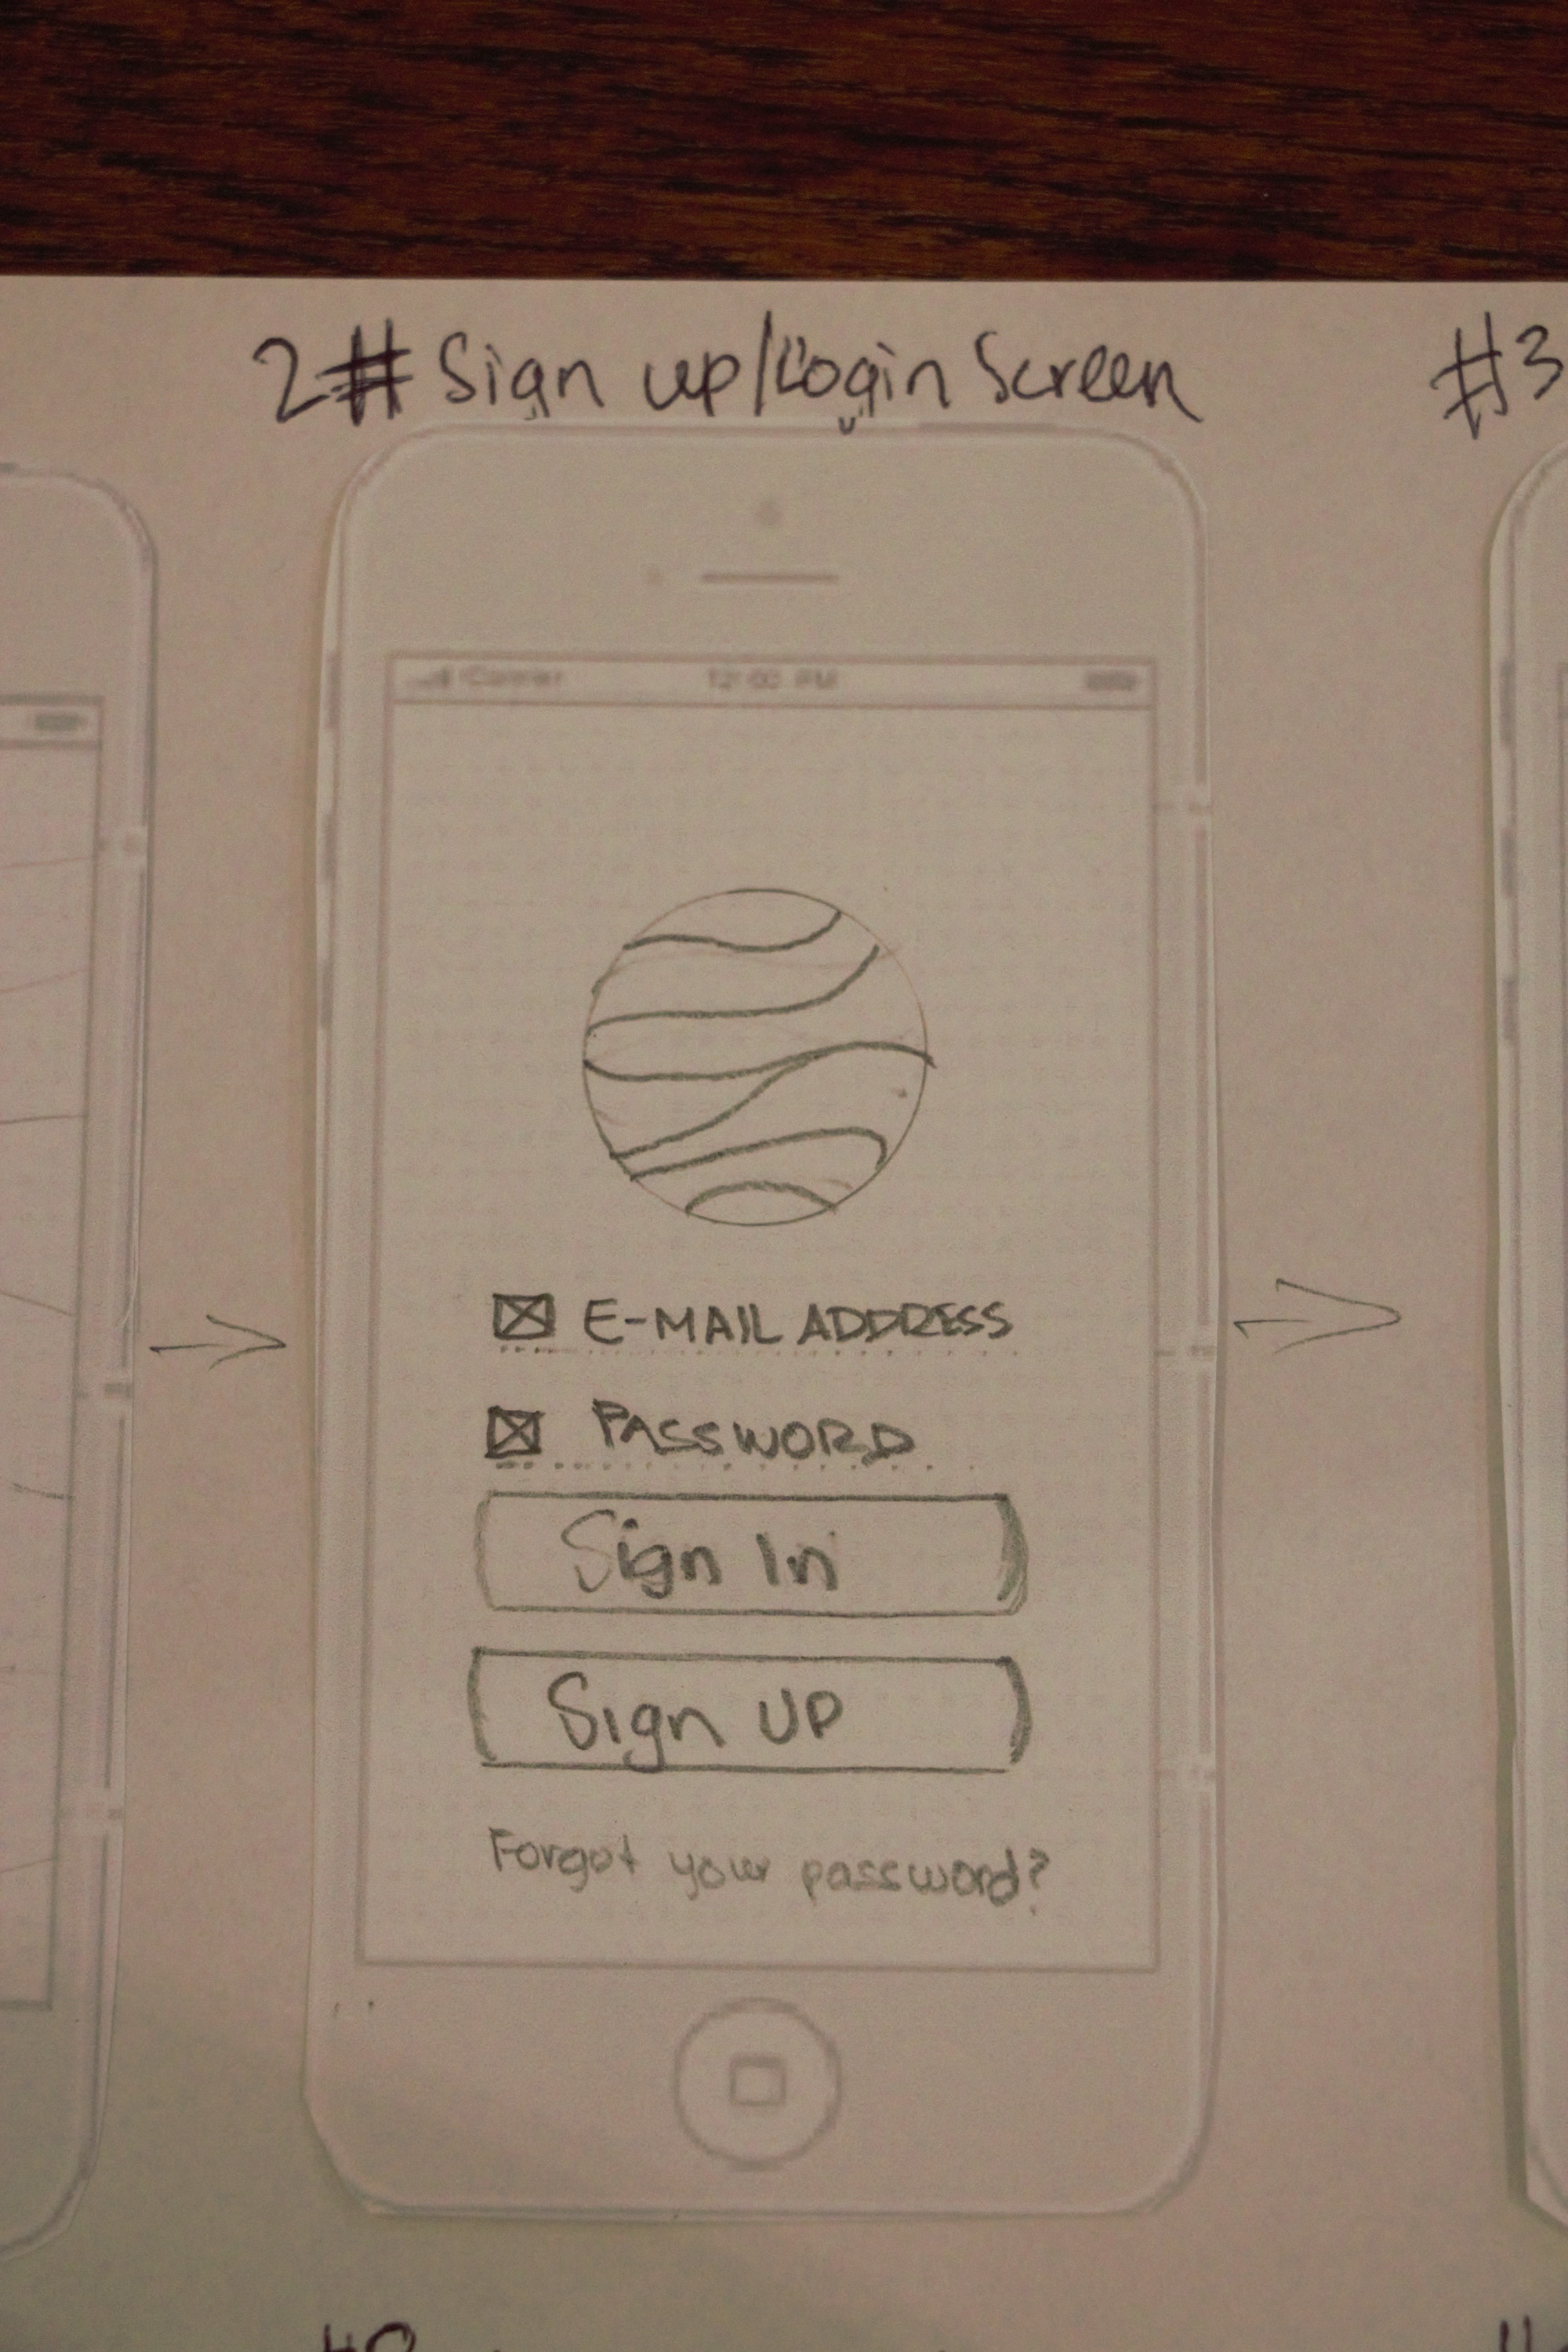 2# Sign up/Login Screen
#3
Carrier 12:02 PM
E-MAIL ADDRESS
PASSWORD
Sign In
Sign UP
Forgot your password?